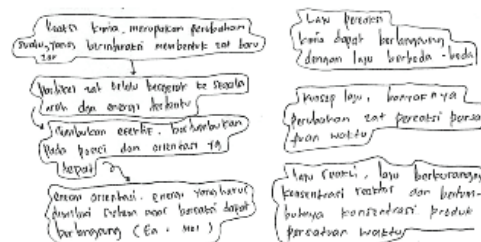 reaksi kimia, merupakan perubahan
suatu zat yang berinteraksi membentuk zat baru
Partikel zat selalu bergerak ke segala
arah dan energi tertentu
Tumbukan efektif, bertumbukan
pada posisi dan orientasi yg
tepat
energi yang harus
agar bereaksi dapat
berlangsung (Ea
Laju pereaksi
kimia dapat berlangsung
dengan laju berbeda-beda
Konsep laju, banyaknya
perubahan zat pereaksi persa
tuan waktu
Laju reaksi, laju berkurangnya
konsentrasi reaktor dan bertam-
bahnya konsentrasi produk
persatuan waktu